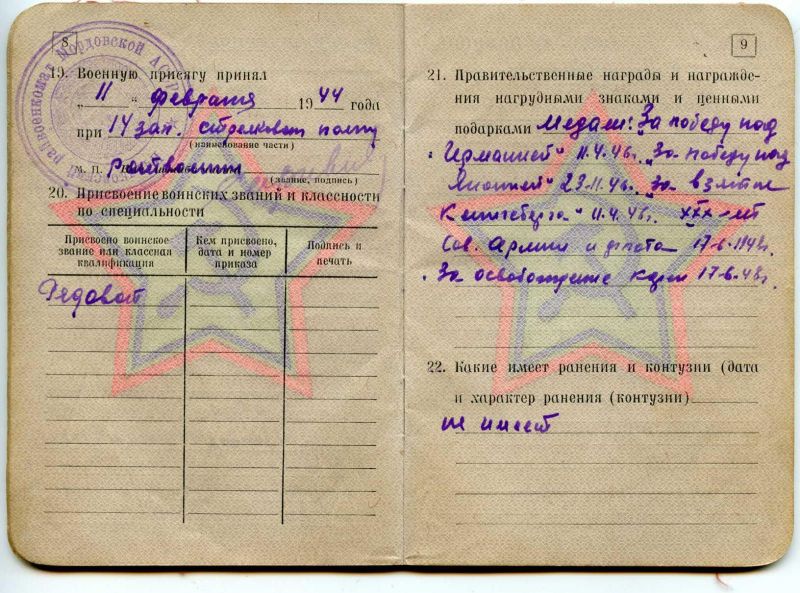 8
19. Военную присягу принял
„ 11 “ февраля 1944 года
при 14 зап. стрелковом полку
(наименование части)
М. П.
(звание, подпись)
20. Присвоение воинских званий и классности
по специальности
Присвоено воинское звание или классная квалификация
Кем присвоено, дата и номер приказа
Подпись и печать
Рядовой
9
21. Правительственные награды и награжде-
ния нагрудными знаками и ценными
подарками Медали: „За победу над
Германией“ 11.4.46г. „За победу над
Японией“ 23.11.46. „За взятие
Кенигсберга“ 11.4.46г. XXX лет
Сов. Армии и флота 17-6-1948г.
За освобождение Кореи 17-6-48г.
22. Какие имеет ранения и контузии (дата
и характер ранения (контузии)
не имеет
райвоенкомат Мордовской